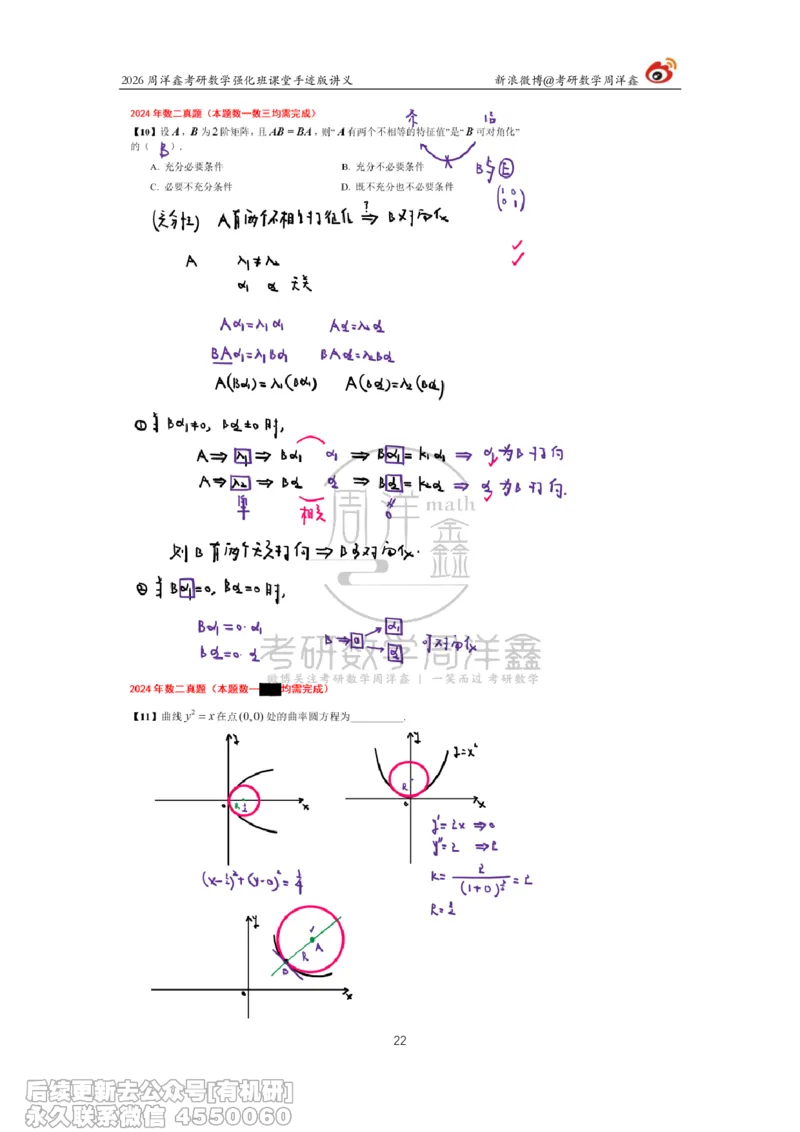 2026 周洋鑫考研数学强化班课堂手迹版讲义 新浪微博@考研数学周洋鑫
2024 年数二真题（本题数一数三均需完成）
【10】设 A，B 为 2 阶矩阵，且 AB = BA，则“ A 有两个不相等的特征值”是“ B 可对角化”
的（ B ）.
A. 充分必要条件 B. 充分不必要条件
C. 必要不充分条件 D. 既不充分也不必要条件
B与E
(1 0
0 1)
(充分性) A有两个不相等特征值 ?⇒ B可对角化
A λ₁≠λ₂
α₁ α₂ 无关
Aα₁=λ₁α₁ Aα₂=λ₂α₂
BAα₁=λ₁Bα₁ BAα₂=λ₂Bα₂
A(Bα₁)=λ₁(Bα₁) A(Bα₂)=λ₂(Bα₂)
① 当 Bα₁≠0, Bα₂≠0 时,
A⇒λ₁⇒Bα₁ α₁ ⇒ Bα₁=k₁α₁ ⇒ α₁为B特向
A⇒λ₂⇒Bα₂ α₂ ⇒ Bα₂=k₂α₂ ⇒ α₂为B特向.
单 相关 0
则B有两个无关特向⇒B可对角化.
② 当 Bα₁=0, Bα₂=0 时,
Bα₁=0·α₁
Bα₂=0·α₂
B→0 α₁ α₂ 可对角化
周洋 math
鑫
考研数学周洋鑫
微博关注考研数学周洋鑫 | 一笑而过 考研数学
2024 年数二真题（本题数一 均需完成）
【11】曲线 y² = x 在点 (0,0) 处的曲率圆方程为__________.
y
R ½
0 x
(x-½)²+(y-0)²=¼
y
y=x²
R
0 x
y'=2x ⇒0
y''=2 ⇒2
k=2/(1+0)^{3/2}=2
R=½
y
A
R
D
0 x
22
后续更新去公众号[有机研]
永久联系微信 4550060